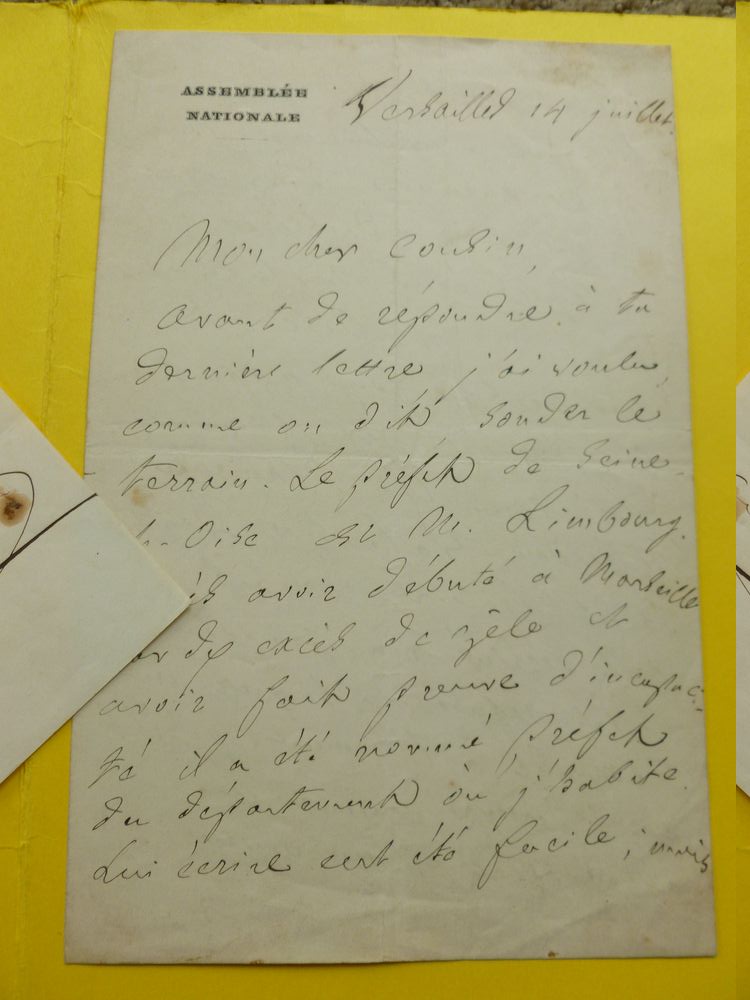 ASSEMBLÉE
NATIONALE
Versailles 14 juillet.
Mon cher Cousin,
avant de répondre à ta
dernière lettre j'ai voulu,
comme on dit, sonder le
terrain. Le préfet de Seine-
-Oise est M. Limbourg.
avoir débuté à Marseille
excès de zèle et
avoir fait preuve d'incapaci-
té il a été nommé préfet
du département où j'habite.
Lui écrire eut été facile, mais